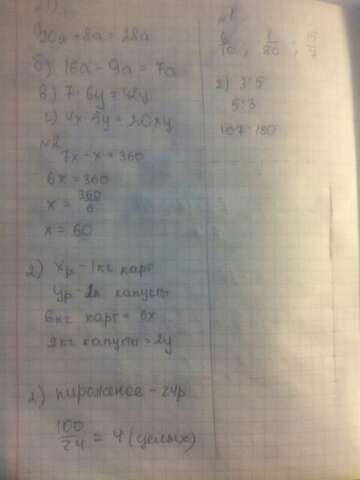 20a + 8a = 28a
б) 16a - 9a = 7a
в) 7 · 6y = 42y
г) 4x · 5y = 20xy
№2
7x - x = 360
6x = 360
x = 360/6
x = 60
2) xр - 1кг карт
yр - 1к капусты
6кг карт = 6x
2кг капусты = 2y
2) пирожаное - 24р
100/24 = 4 (целых)
№1
/10 ; /80 ; 15/7
2) 3:5
5:3
107:180